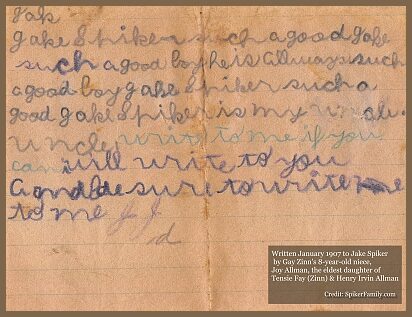 Jak
Jake Spiker such a good Jake
such a good boy he is allways such
a good boy Jake Spiker such a
good Jake Spiker is my uncle.
uncle write to me if you
can i will write to you
and be sure to write me
to me J J
d
Written January 1907 to Jake Spiker
by Gay Zinn's 8-year-old niece,
Joy Allman, the eldest daughter of
Tensie Fay (Zinn) & Henry Irvin Allman
Credit: SpikerFamily.com